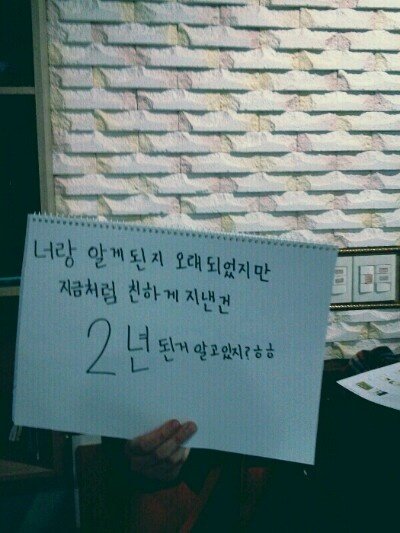 너랑 알게된지 오래되었지만
지금처럼 친하게 지낸건
2년 된거 알고있지?ㅎㅎ